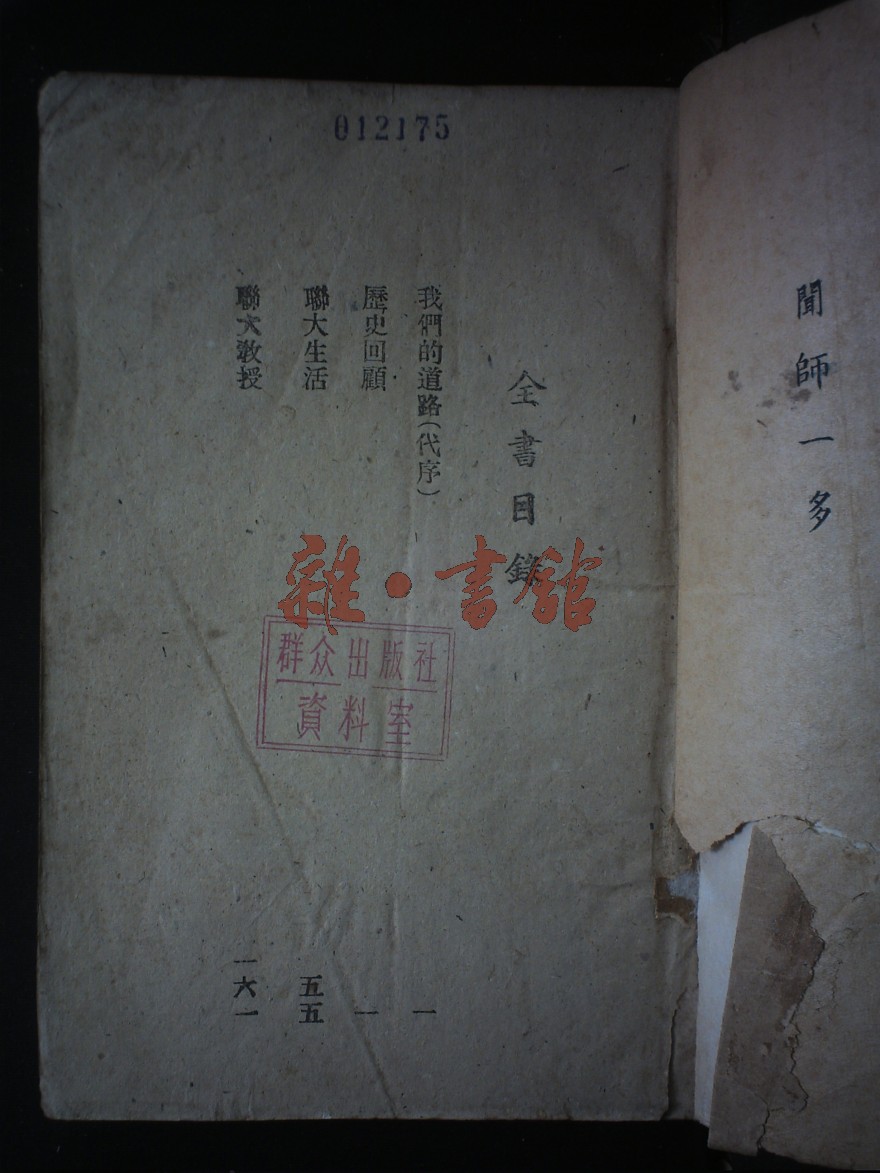 012175
聞師一多
全書目錄
我們的道路（代序） 一
歷史回顧 一
聯大生活 五五
聯大教授 一六一
雜·書館
群众出版社
資料室